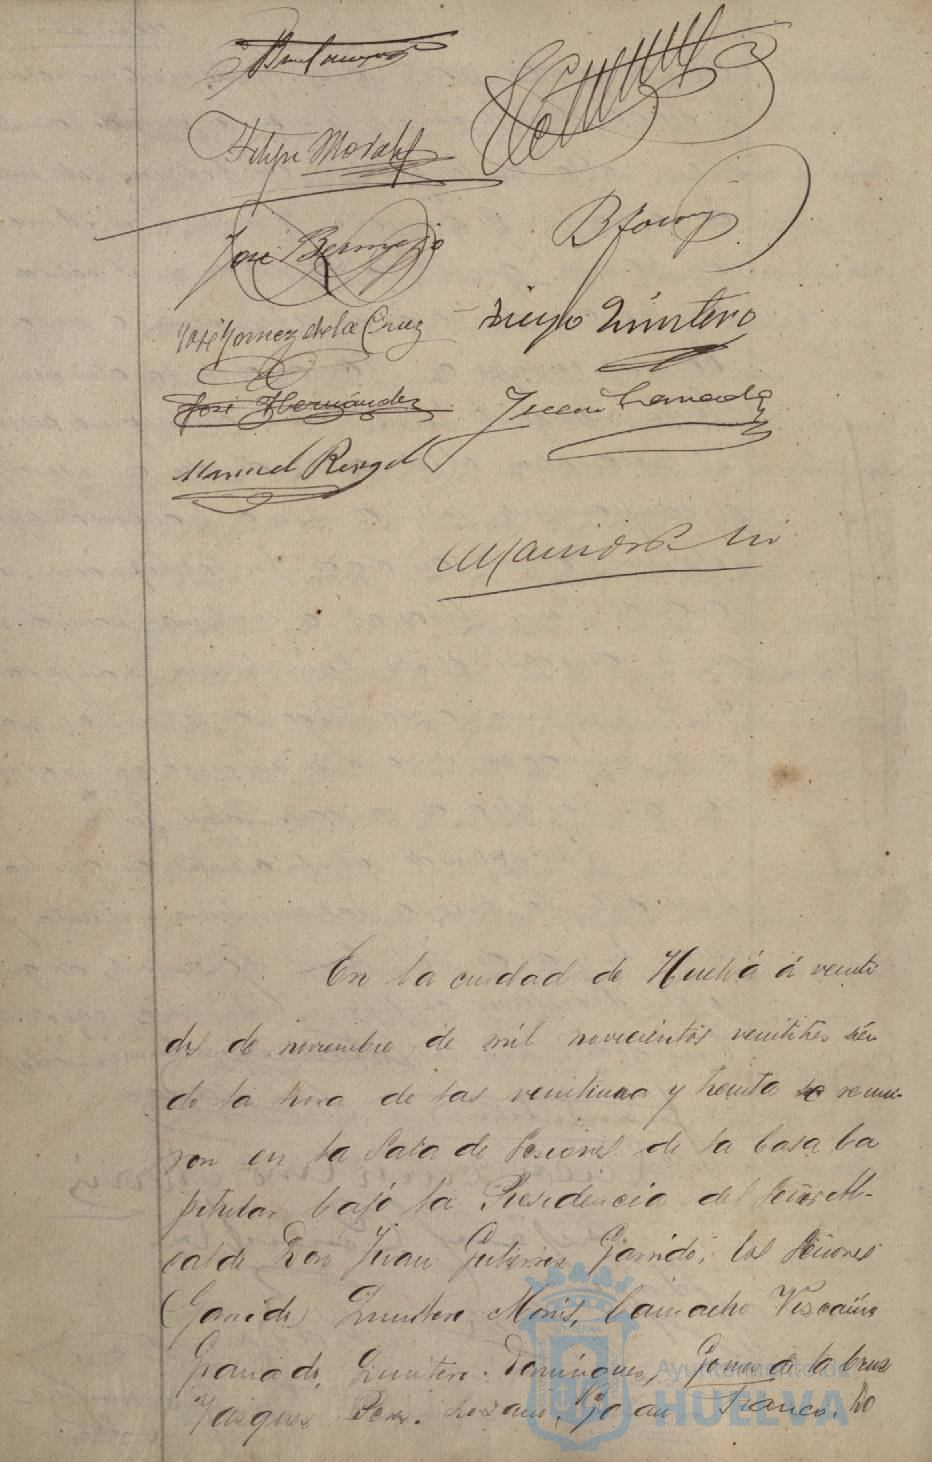 Felipe Morales
José Bermejo
José Gomez de la Cruz
Diego Quintero
José Hernández
Manuel Rengel
En la ciudad de Huelva á veinti
dos de noviembre de mil novecientos veintitres sien
do la hora de las veintiuna y treinta se reunie-
ron en la Sala de Sesiones de la Casa Ca
pitular bajo la Presidencia del Señor Al-
calde Don Juan Gutierrez Garrido, los Señores
Garrido, Quintero Moris, Camacho Vizcaino
Granado, Quintero Dominguez, Gomez de la Cruz
Vazquez Perez, Lozano, Galan Franco,
Ayuntamiento de
HUELVA